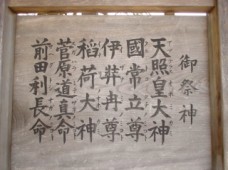 御祭神
天照皇大神
國常立尊
伊弉冉尊
稻荷大神
菅原道真命
前田利長命